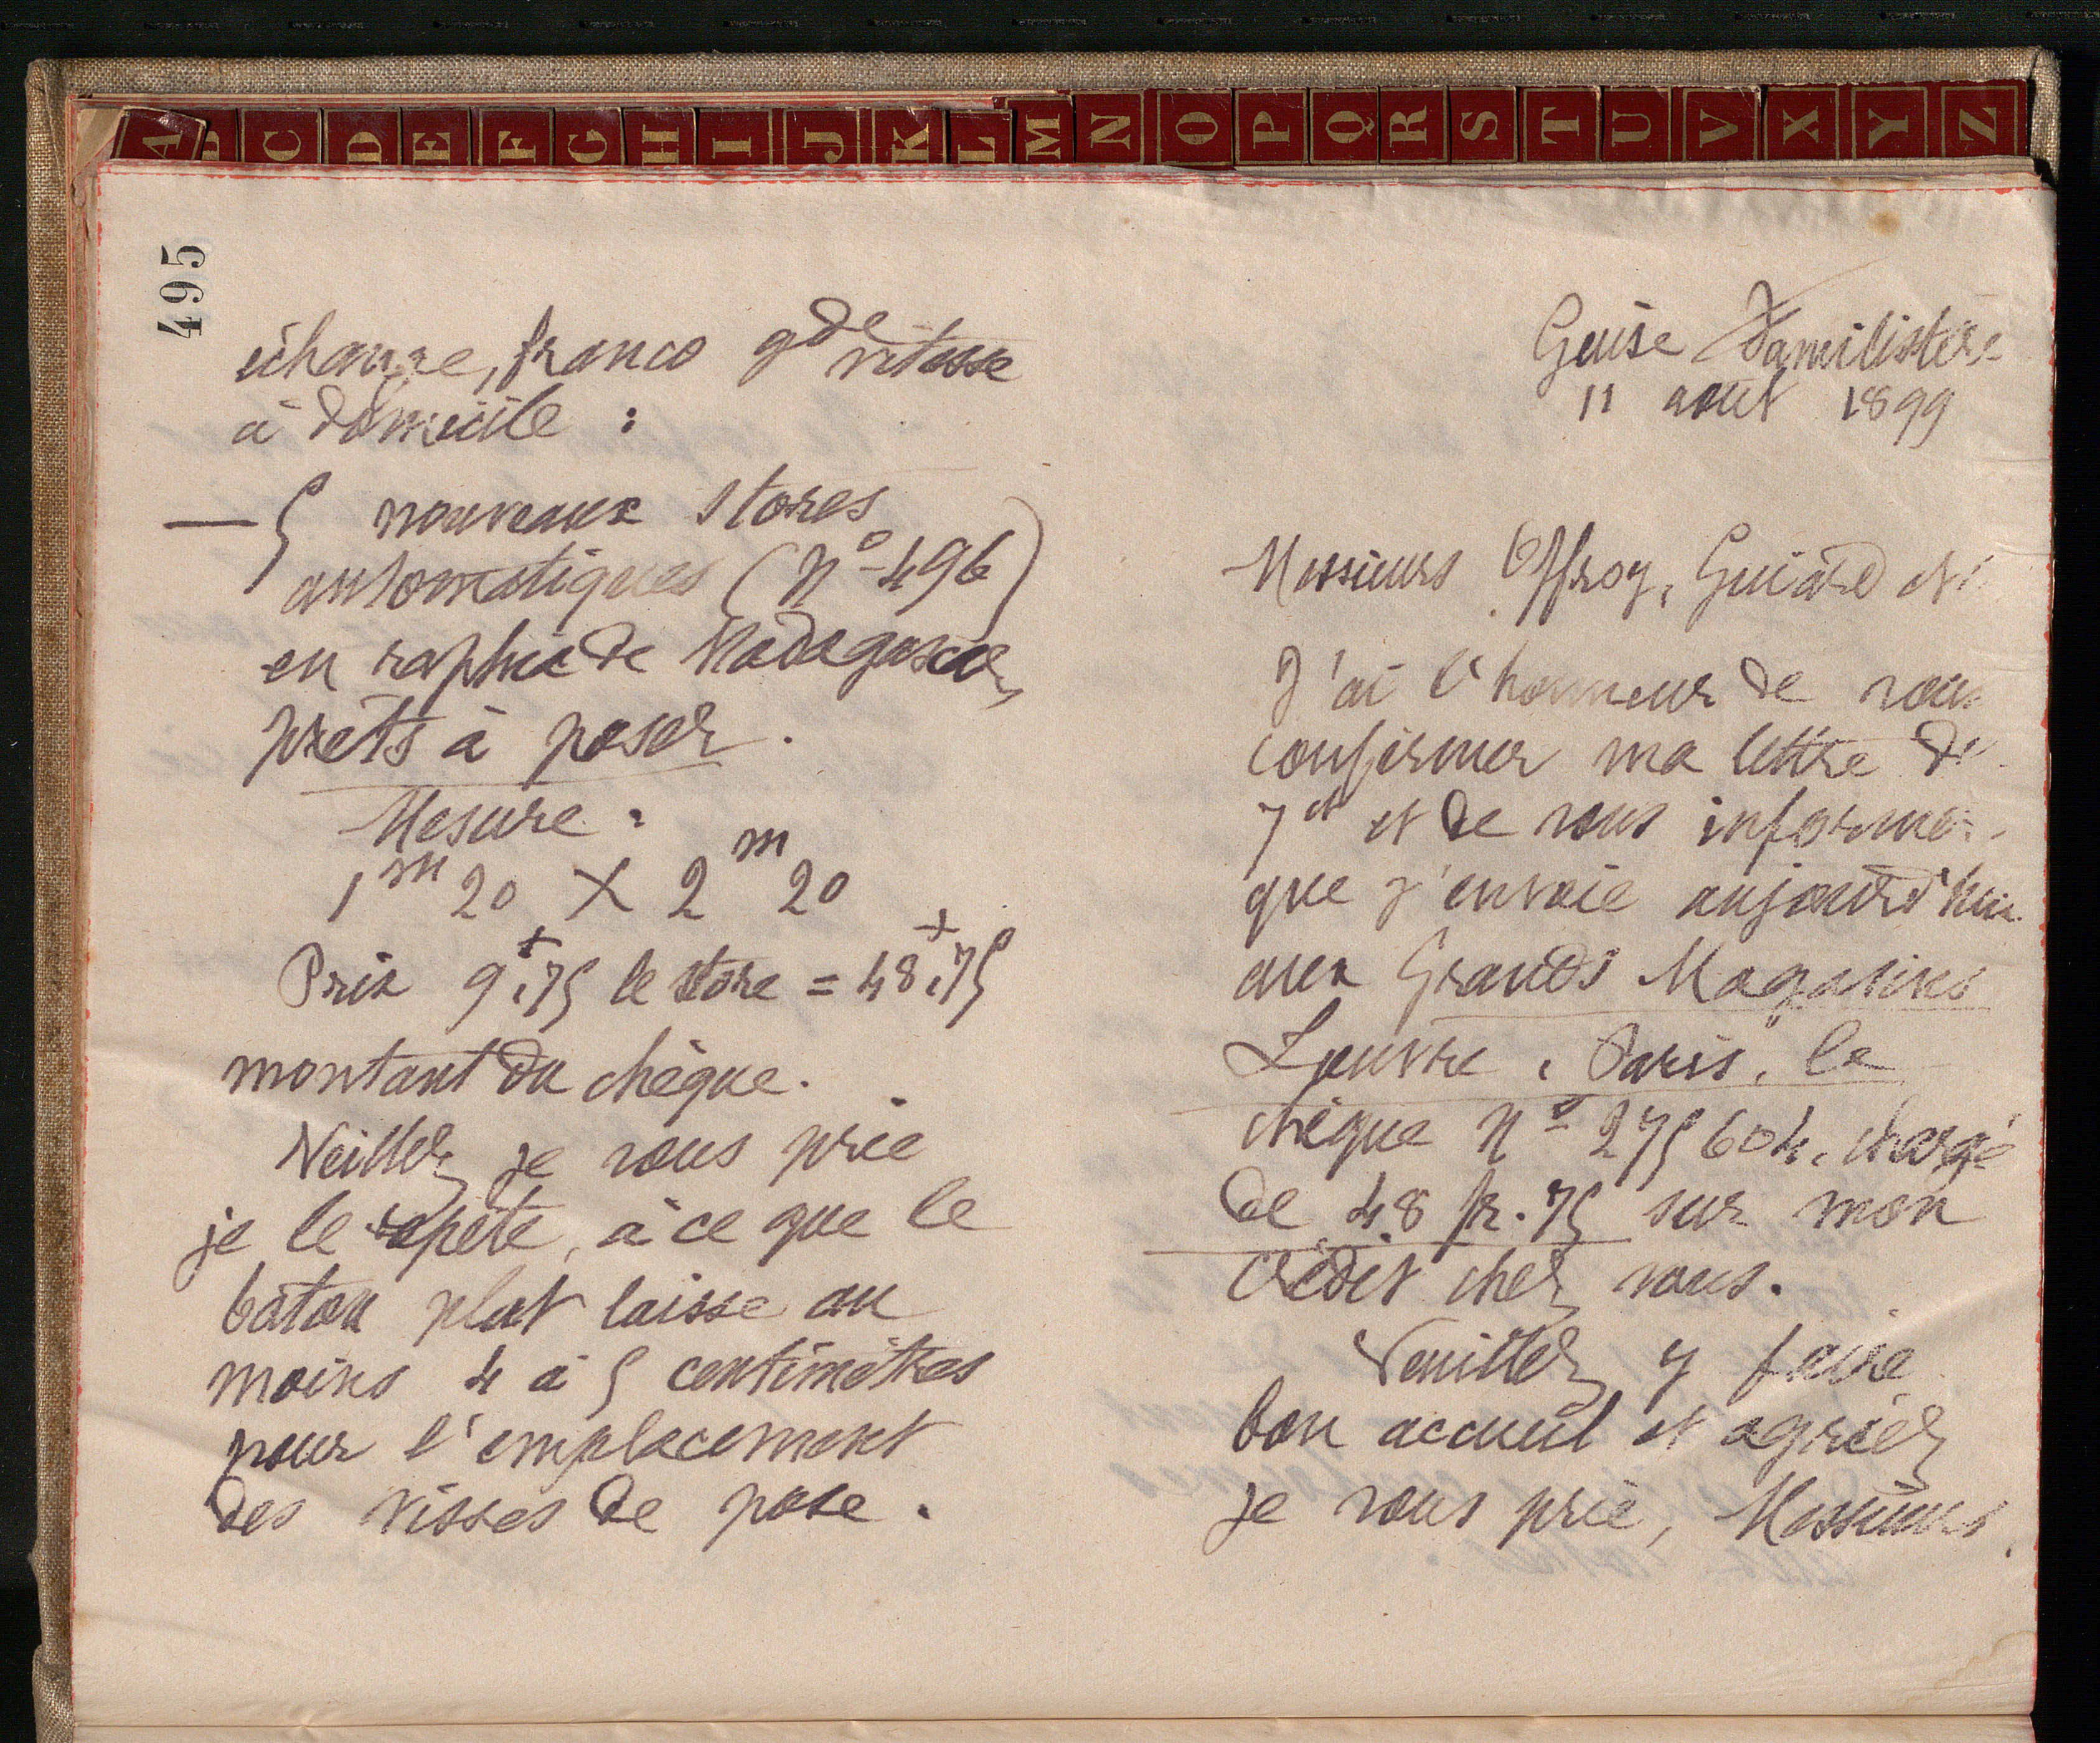 A B C D E F G H I J K L M N O P Q R S T U V X Y Z
495
échange, franco gde vitesse
à domicile :
— 5 nouveaux stores
automatiques (No 496)
en raphia de Madagascar,
prêts à poser.
Mesure :
1m 20 X 2m 20
Prix 9f,75 le store = 48f,75
montant du chèque.
Veillez je vous prie
je le répète, à ce que le
bâton plat laisse au
moins 4 à 5 centimètres
pour l'emplacement
des visses de pose.
Guise Familistère
11 août 1899
Messieurs Offroy, Guiard et
J'ai l'honneur de vous
confirmer ma lettre du
7 ct et de vous informer
que j'envoie aujourd'hui
aux Grands Magasins
Louvre, Paris, le
chèque No 275604, chargé
de 48 fr. 75 sur mon
crédit chez vous.
Veuillez y faire
bon accueil et agréez
je vous prie, Messieurs,